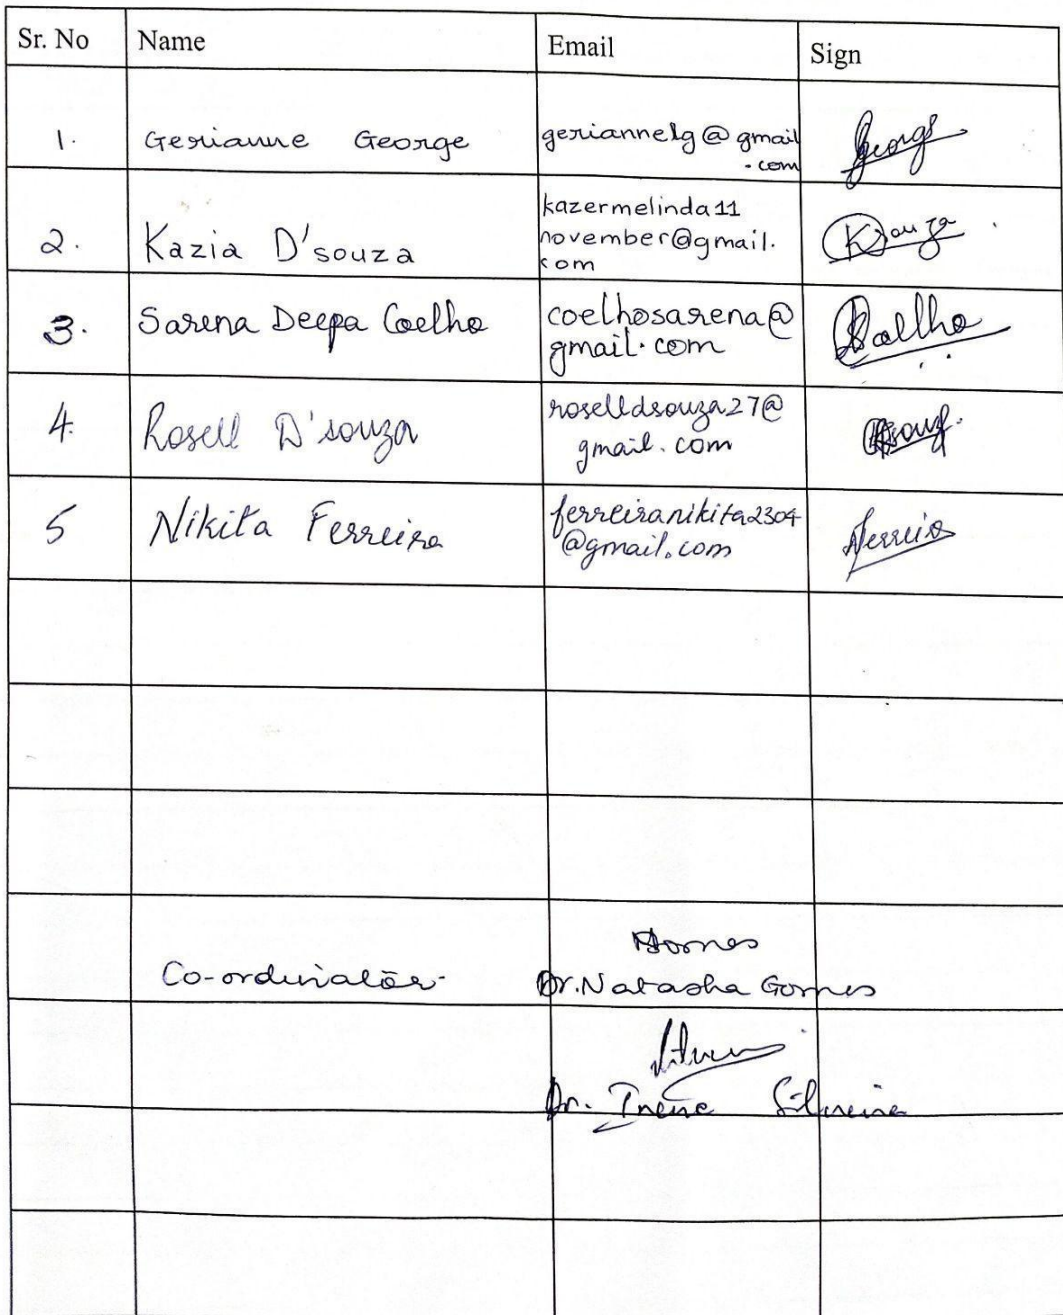 Sr. No Name Email Sign
1. Gerianne George geriannelg@gmail
.com
George
kazermelinda11
2. Kazia D'souza november@gmail.
com
3. Sarena Deepa Coelho coelhosarena@
gmail.com
Coelho
4. Rosell D'souza roselldsouza27@
gmail.com
5 Nikita Ferreira ferreiranikita2304
@gmail.com
Co-ordinator Dr. Natasha Gomes
Dr. Irene Silveira